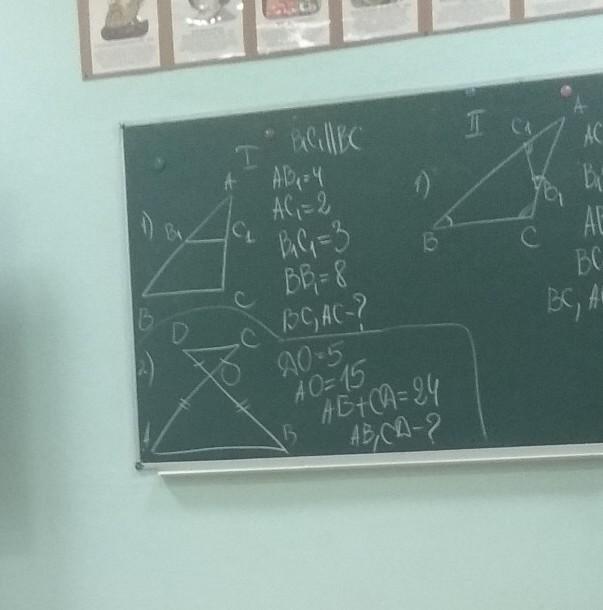 I
B₁C₁||BC
1)
A
B₁
C₁
B
C
AB₁=4
AC₁=2
B₁C₁=3
BB₁=8
BC, AC-?
2)
D
C
O
A
B
DO=5
AO=15
AB+CD=24
AB, CD-?
II
1)
C₁
A
B₁
B
C
AC
B₁
BC
BC, A